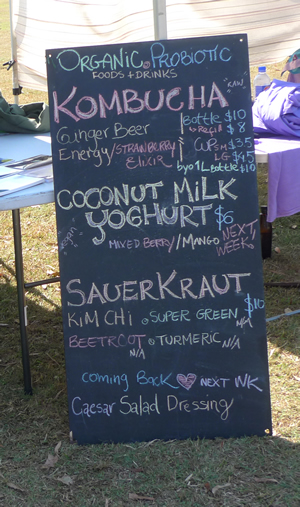 ORGANIC & PROBIOTIC
FOODS + DRINKS
KOMBUCHA RAW
Ginger Beer
Energy/STRAWBERRY ELIXIR
Bottle $10
REFILL $8
CUP M $3.5
LG $4.5
byo 1L bottle $10
COCONUT MILK
YOGHURT $6
Vegan
MIXED BERRY//MANGO NEXT WEEK
SAUERKRAUT
$10
KIM CHi & SUPER GREEN N/A
BEETROOT N/A & TURMERIC N/A
coming BACK NEXT WK
Caesar Salad Dressing